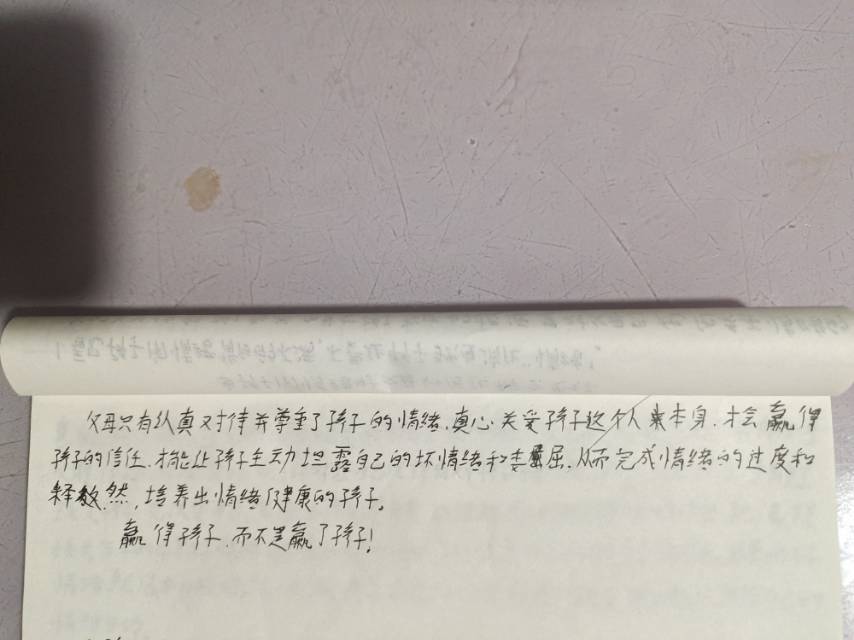 父母只有认真对待并尊重了孩子的情绪，真心关爱孩子这个人来本身，才会赢得
孩子的信任，才能让孩子主动坦露自己的坏情绪和委屈，从而完成情绪的过度和
释然，培养出情绪健康的孩子。
赢得孩子，而不是赢了孩子！